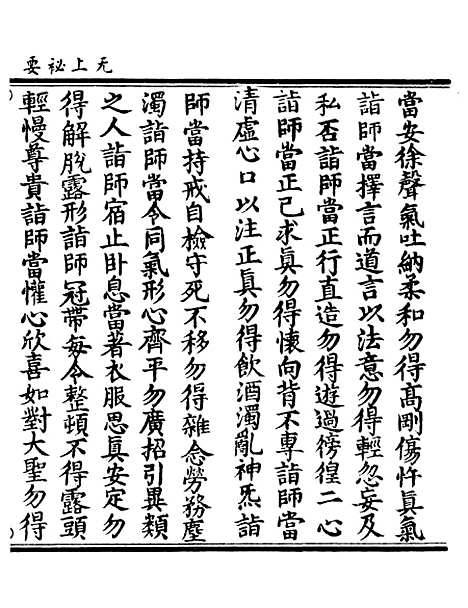 无上祕要
當安徐聲氣吐納柔和勿得髙剛傷忤眞氣
詣師當擇言而道言以法意勿得輕忽妄及
私否詣師當正行直造勿得遊過徬徨二心
詣師當正己求眞勿得懐向背不專詣師當
清虛心口以注正眞勿得飲酒濁亂神炁詣
師當持戒自檢守死不移勿得雜念勞務塵
濁詣師當令同氣形心齊平勿廣招引異類
之人詣師宿止卧息當著衣服思眞安定勿
得解脫露形詣師冠帶每令整頓不得露頭
輕慢尊貴詣師當懽心欣喜如對大聖勿得